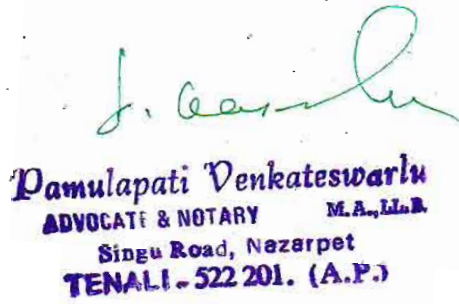 Pamulapati Venkateswarlu
ADVOCATE & NOTARY M.A.,LL.B.
Singu Road, Nazarpet
TENALI - 522 201. (A.P.)